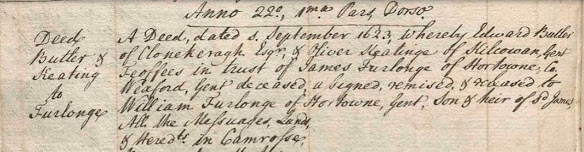 Anno 22o, 1ma Pars, Dorso
Deed
Butler &
Keating
to
Furlonge
A Deed, dated 5, September 1623, whereby Edward Butler
of Clonekeragh Esqr, & Oliver Keatinge of Kilcowan, Gent
Feoffees in trust of James Furlonge of Hortowne, Co.
Wexford, Gent deceased, assigned, remised, & released to
William Furlonge of Hortowne, Gent, son & heir of Sd James,
All the Messuages, Lands,
& Heredts in Camrosse,